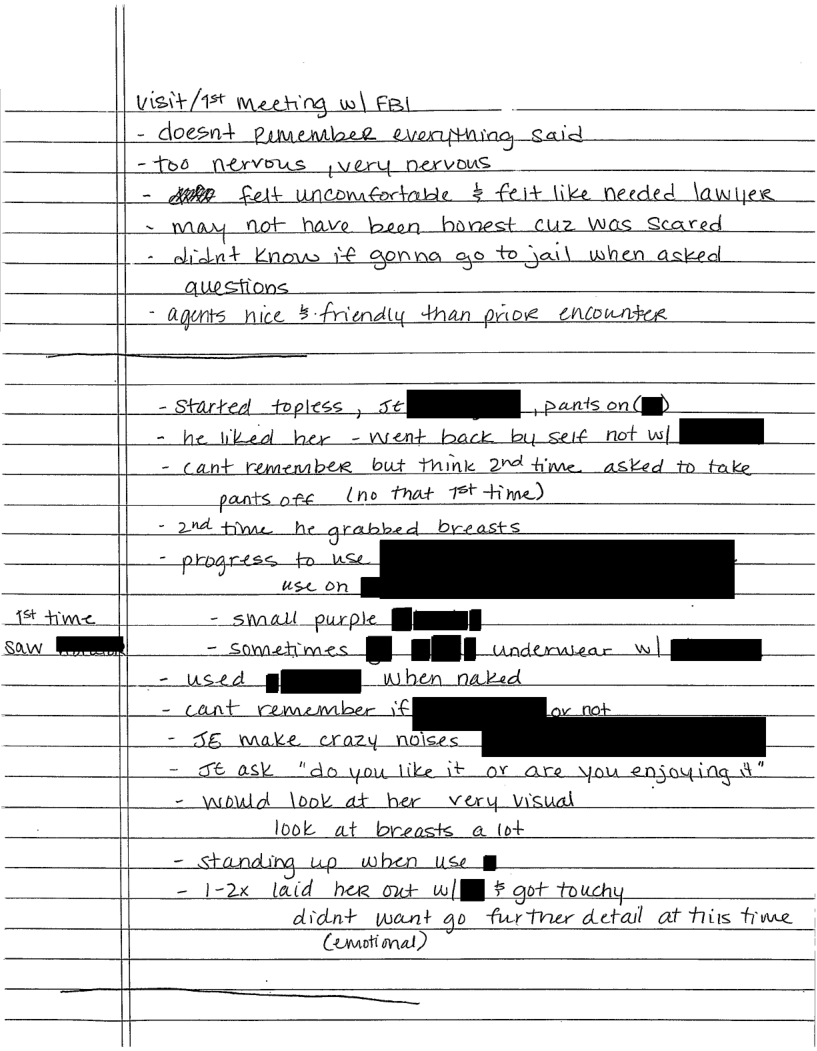 visit/1st meeting w/ FBI
- doesnt remember everything said
- too nervous, very nervous
- felt uncomfortable & felt like needed lawyer
- may not have been honest cuz was scared
- didnt know if gonna go to jail when asked
questions
- agents nice & friendly than prior encounter
- started topless, JE , pants on ( )
- he liked her - went back by self not w/
- cant remember but think 2nd time asked to take
pants off (no that 1st time)
- 2nd time he grabbed breasts
- progress to use
use on
1st time - small purple
saw - sometimes underwear w/
- used when naked
- cant remember if or not
- JE make crazy noises
- JE ask "do you like it or are you enjoying it"
- would look at her very visual
look at breasts a lot
- standing up when use
- 1-2x laid her out w/ & got touchy
didnt want go further detail at this time
(emotional)